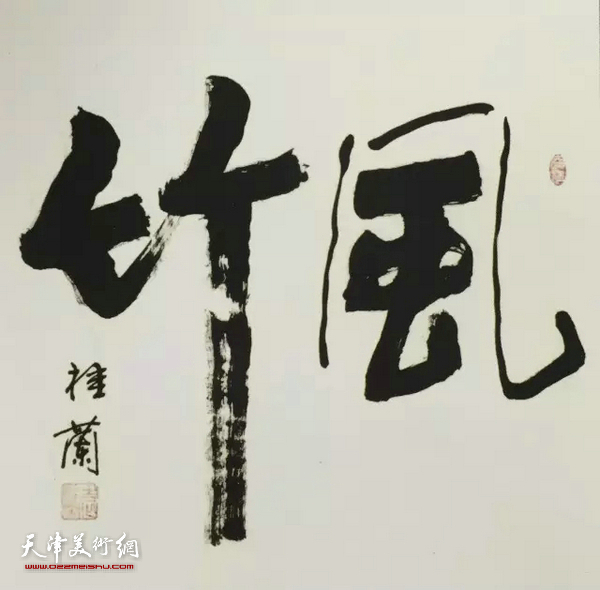 風竹
桂蘭
天津美術網
www.022meishu.com